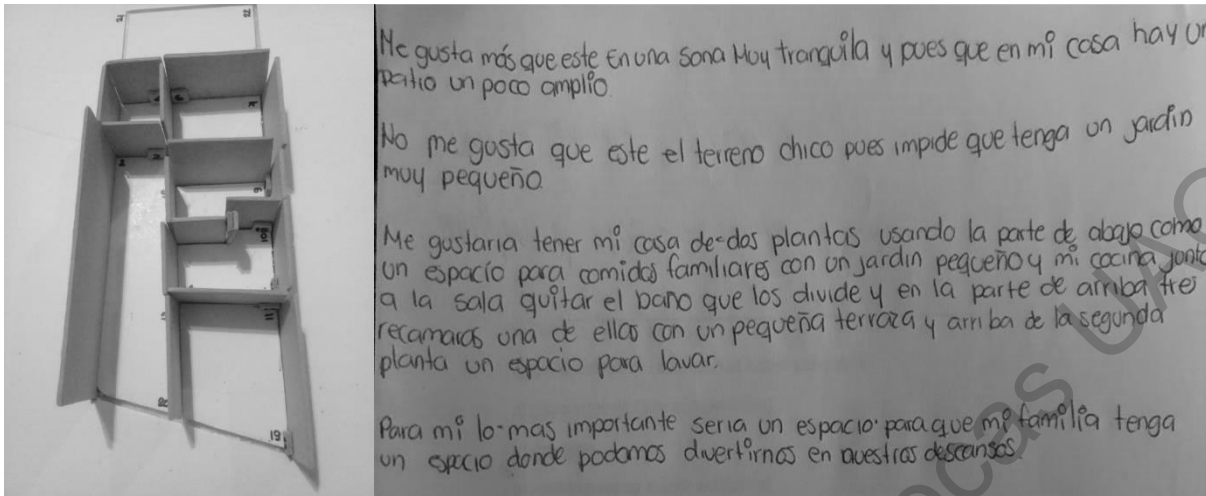 Me gusta más que este En una sona Muy tranquila y pues que en mi casa hay un
patio un poco amplio.
No me gusta que este el terreno chico pues impide que tenga un jardin
muy pequeño.
Me gustaria tener mi casa de dos plantas usando la parte de abajo como
un espacio para comidas familiares con un jardin pequeño y mi cocina junto
a la sala quitar el baño que los divide y en la parte de arriba tres
recamaras una de ellas con un pequeña terraza y arriba de la segunda
planta un espacio para lavar.
Para mi lo mas importante seria un espacio para que mi familia tenga
un espacio donde podamos divertirnos en nuestros descansos.